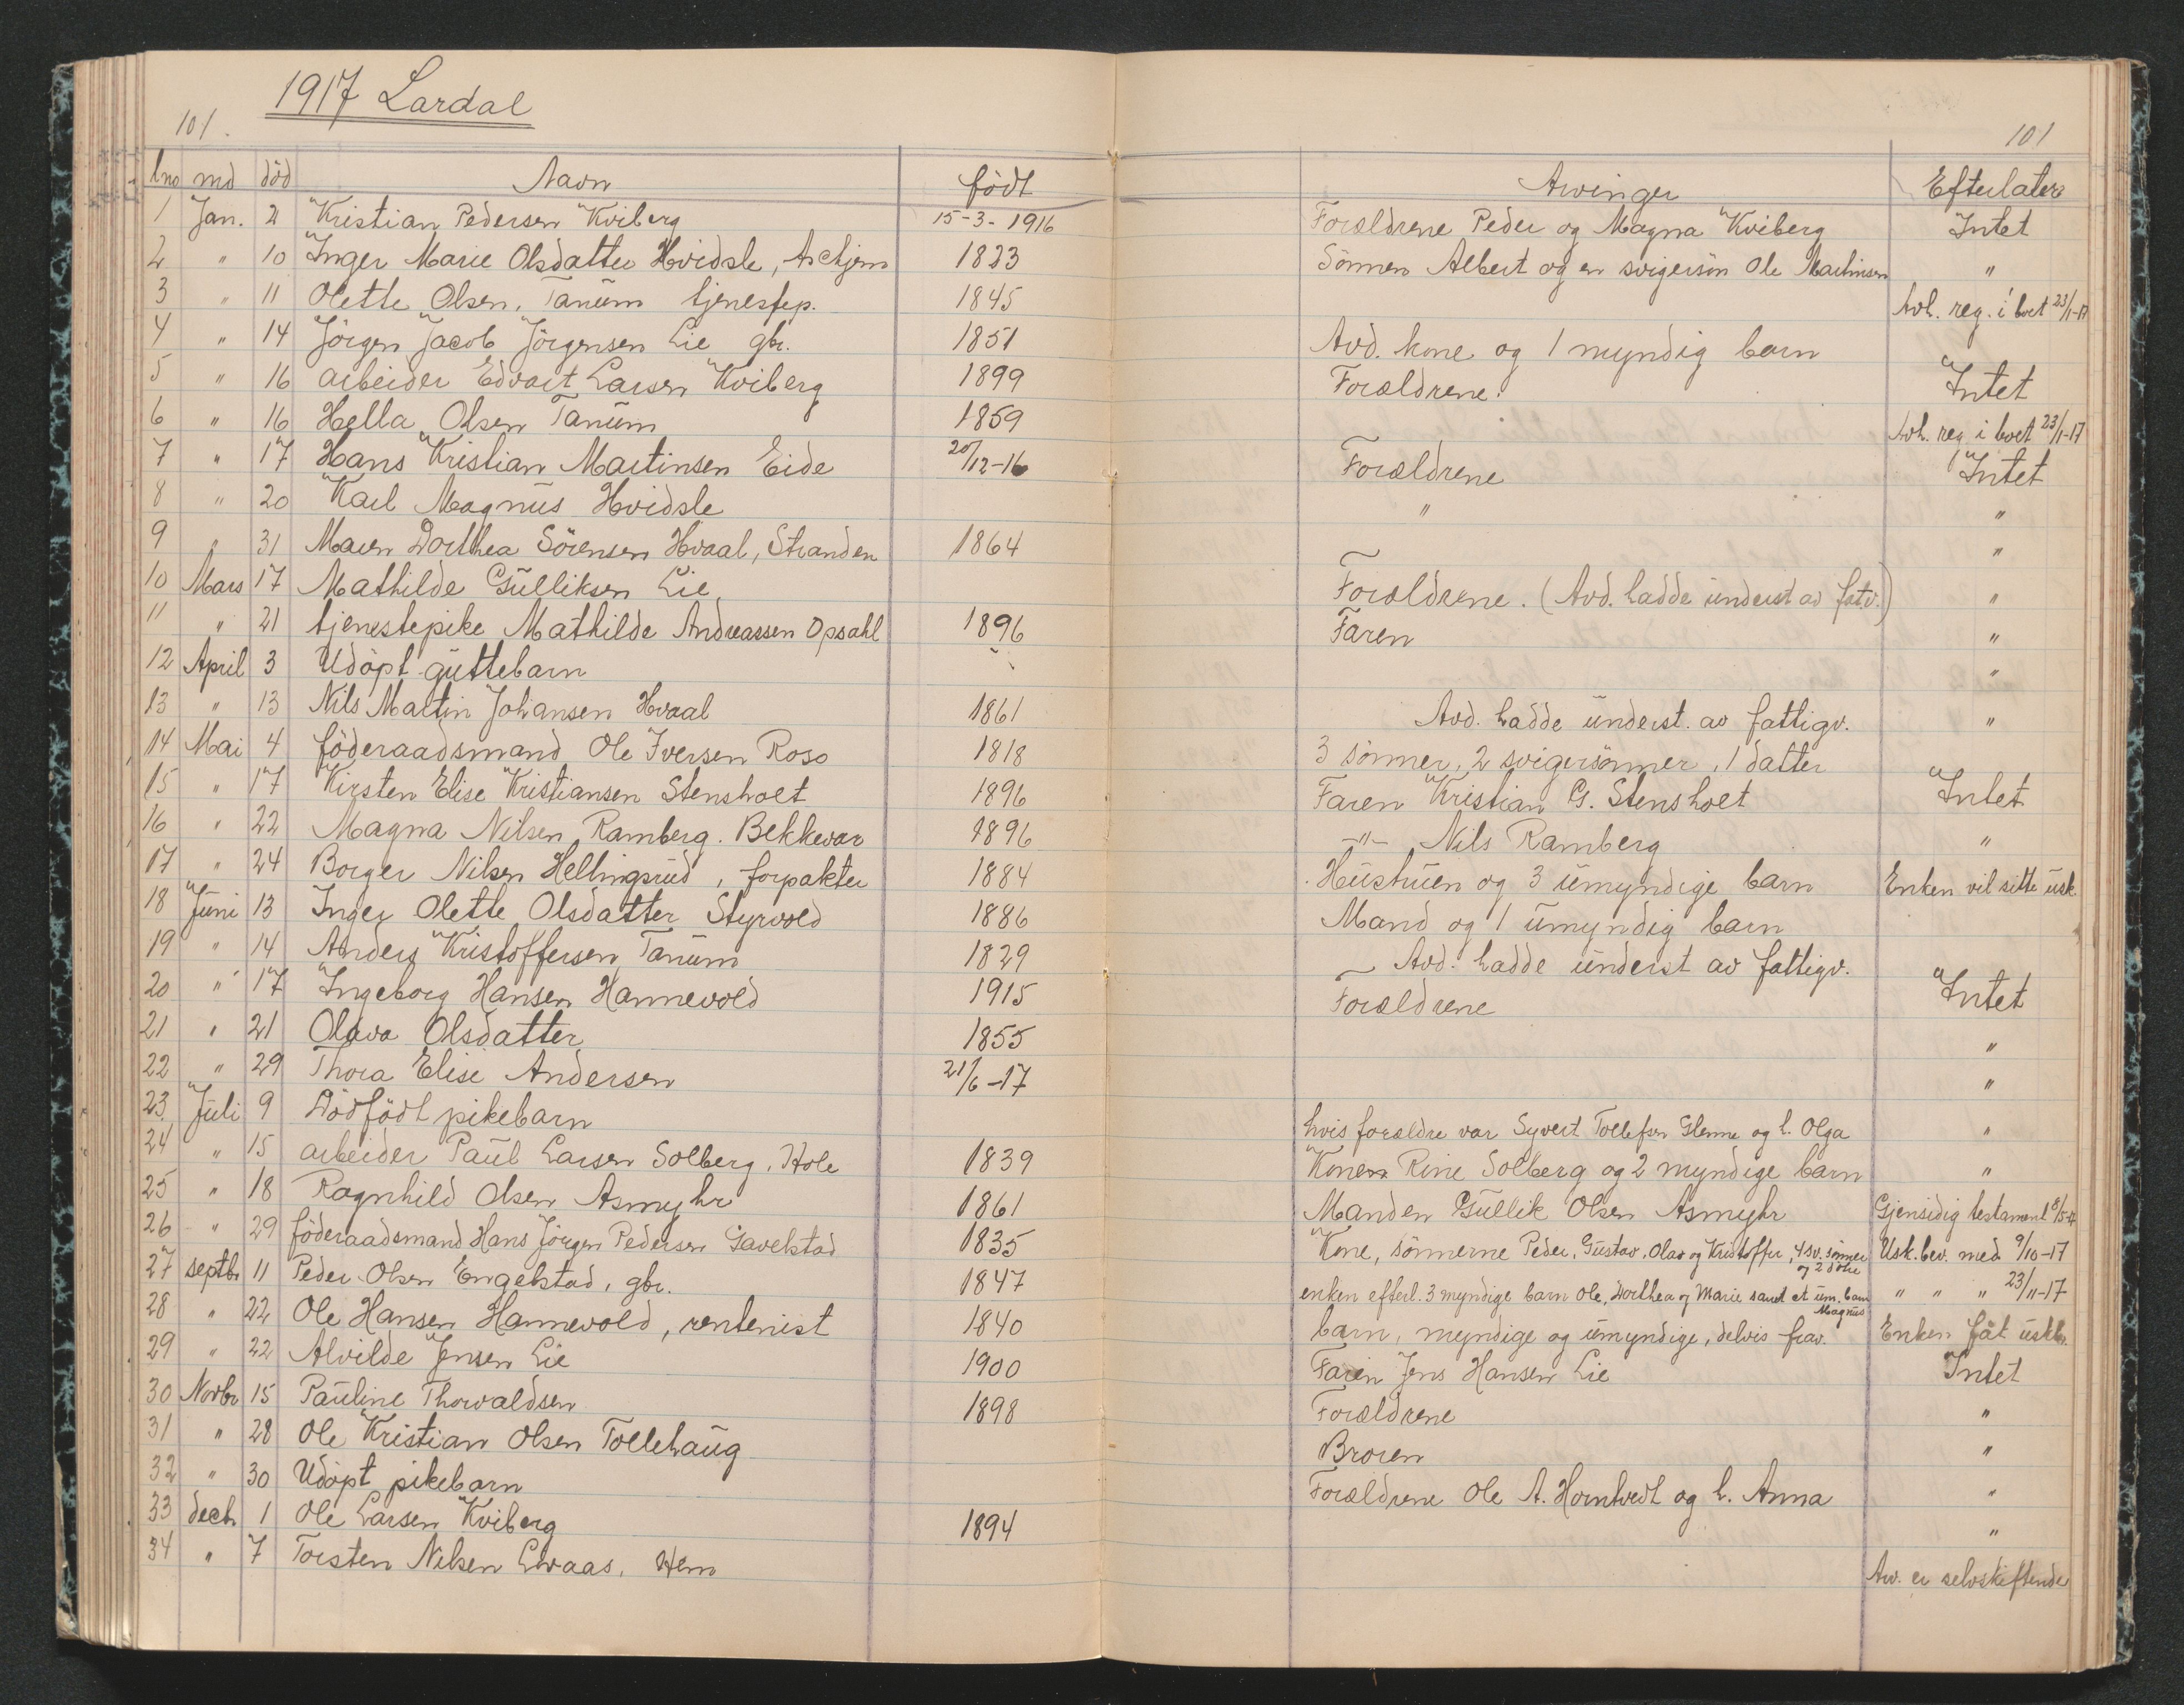 1917 Lardal
101.
101
lno md död Navn födt Arvinger Efterlater
1 Jan. 2 Kristian Pedersen Kviberg 15-3-1916 Forældrene Peder og Magna Kviberg Intet
2 " 10 Inger Marie Olsdatter Hvidsle, Askjem 1823 Sönnen Albert og en svigersön Ole Martinsen "
3 " 11 Olette Olsen, Tanum tjenestep. 1845 Avh. reg. i boet 23/1-17
4 " 14 Jörgen Jacob Jörgensen Lie gbr. 1851 Avd. kone og 1 myndig barn
5 " 16 arbeider Edvart Larsen Kviberg 1899 Forældrene. Intet
6 " 16 Hella Olsen Tanum 1859 Avh. reg i boet 23/1-17
7 " 17 Hans Kristian Martinsen Eide 20/12-16 Forældrene Intet
8 " 20 Karl Magnus Hvidsle " "
9 " 31 Maren Dorthea Sörensen Hvaal, Stranden 1864 "
10 Mars 17 Mathilde Gulliksen Lie Forældrene. (Avd. hadde underst av fatv.) "
11 " 21 tjenestepike Mathilde Andreassen Opsahl 1896 Faren "
12 April 3 Udöpt guttebarn "
13 " 13 Nils Martin Johansen Hvaal 1861 Avd. hadde underst. av fattigv. "
14 Mai 4 föderaadsmand Ole Iversen Roso 1818 3 sönner, 2 svigersönner, 1 datter
15 " 17 Kirsten Elise Kristiansen Stensholt 1896 Faren Kristian G. Stensholt Intet
16 " 22 Magna Nilsen Ramberg. Bekkevar 1896 -"- Nils Ramberg "
17 " 24 Borger Nilsen Hellingsrud, forpakter 1884 Hustruen og 3 umyndige barn Enken vil sitte usk.
18 Juni 13 Inger Olette Olsdatter Styrvold 1886 Mand og 1 umyndig barn
19 " 14 Anders Kristoffersen Tanum 1829 Avd. hadde underst av fattigv.
20 " 17 Ingeborg Hansen Hannevold 1915 Forældrene Intet
21 " 21 Olava Olsdatter 1855 "
22 " 29 Thora Elise Andersen 21/6-17 "
23 Juli 9 Dödfödt pikebarn hvis forældre var Syvert Tollefsen Glenne og h. Olga "
24 " 15 arbeider Paul Larsen Solberg, Hole 1839 Konen Rine Solberg og 2 myndige barn "
25 " 18 Ragnhild Olsen Asmyhr 1861 Manden Gullik Olsen Asmyhr Gjensidig testament
26 " 29 föderaadsmand Hans Jörgen Pedersen Gavelstad 1835 Kone, sönnerne Peder, Gustav, Olav og Kristoffer, 4 sv. sönner og 2 dötre Usk. bev. med 9/10-17
27 septbr 11 Peder Olsen Engelstad, gbr. 1847 enken efterl. 3 myndige barn Ole, Dorthea og Marie samt et um. barn Magnus " " " 23/11-17
28 " 22 Ole Hansen Hannevold, rentenist 1840 barn, myndige og umyndige, delvis frav. Enken fåt uskb.
29 " 22 Alvilde Jensen Lie 1900 Faren Jens Hansen Lie Intet
30 Novbr 15 Pauline Thorvaldsen 1898 Forældrene "
31 " 28 Ole Kristian Olsen Tollehaug Broren "
32 " 30 Udöpt pikebarn Forældrene Ole A. Horntvedt og h. Anna "
33 decb. 1 Ole Larsen Kviberg 1894 "
34 " 7 Torsten Nilsen Lovaas, Hem Arv. er selvskiftende